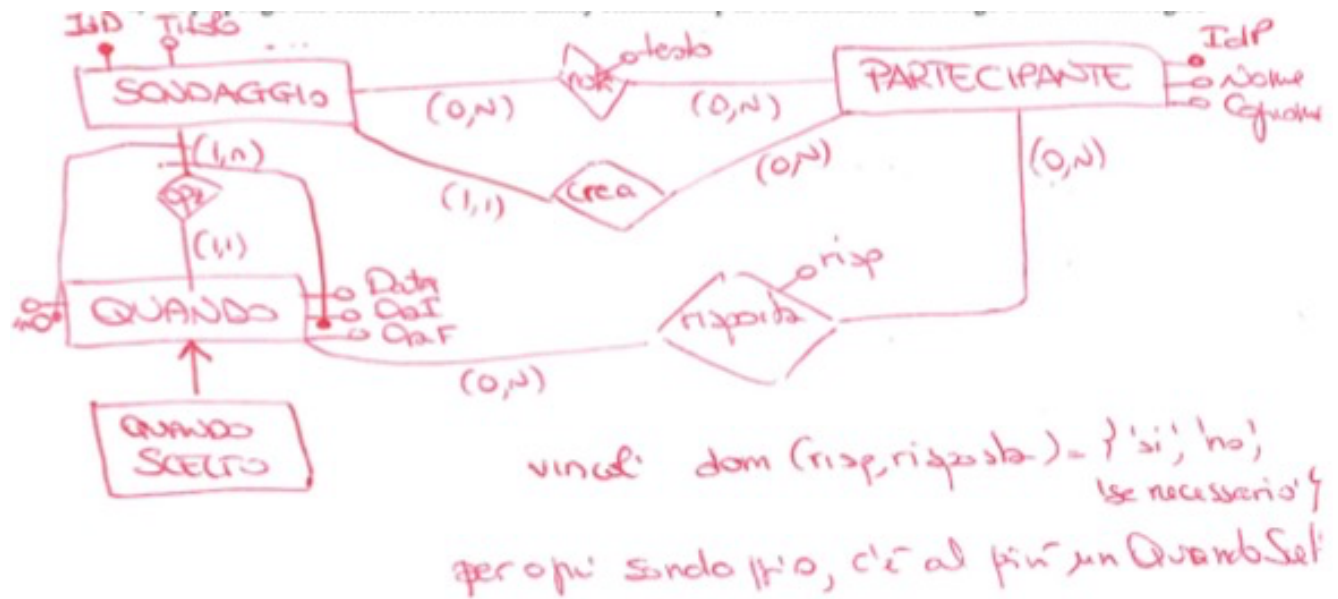 IsD Titolo ...
SONDAGGIO
nota
testo
PARTECIPANTE
IdP
Nome
Cognome
(0,N) (0,N)
(1,n)
opz
(1,1)
(1,1)
crea
(0,N)
(0,N)
QUANDO
Data
OraI
OraF
risposta
risp
(0,N)
QUANDO
SCELTO
vincoli dom (risp, risposta) = {'si', 'no',
'se necessario'}
per ogni sondaggio, c'è al più un QuandoScelt